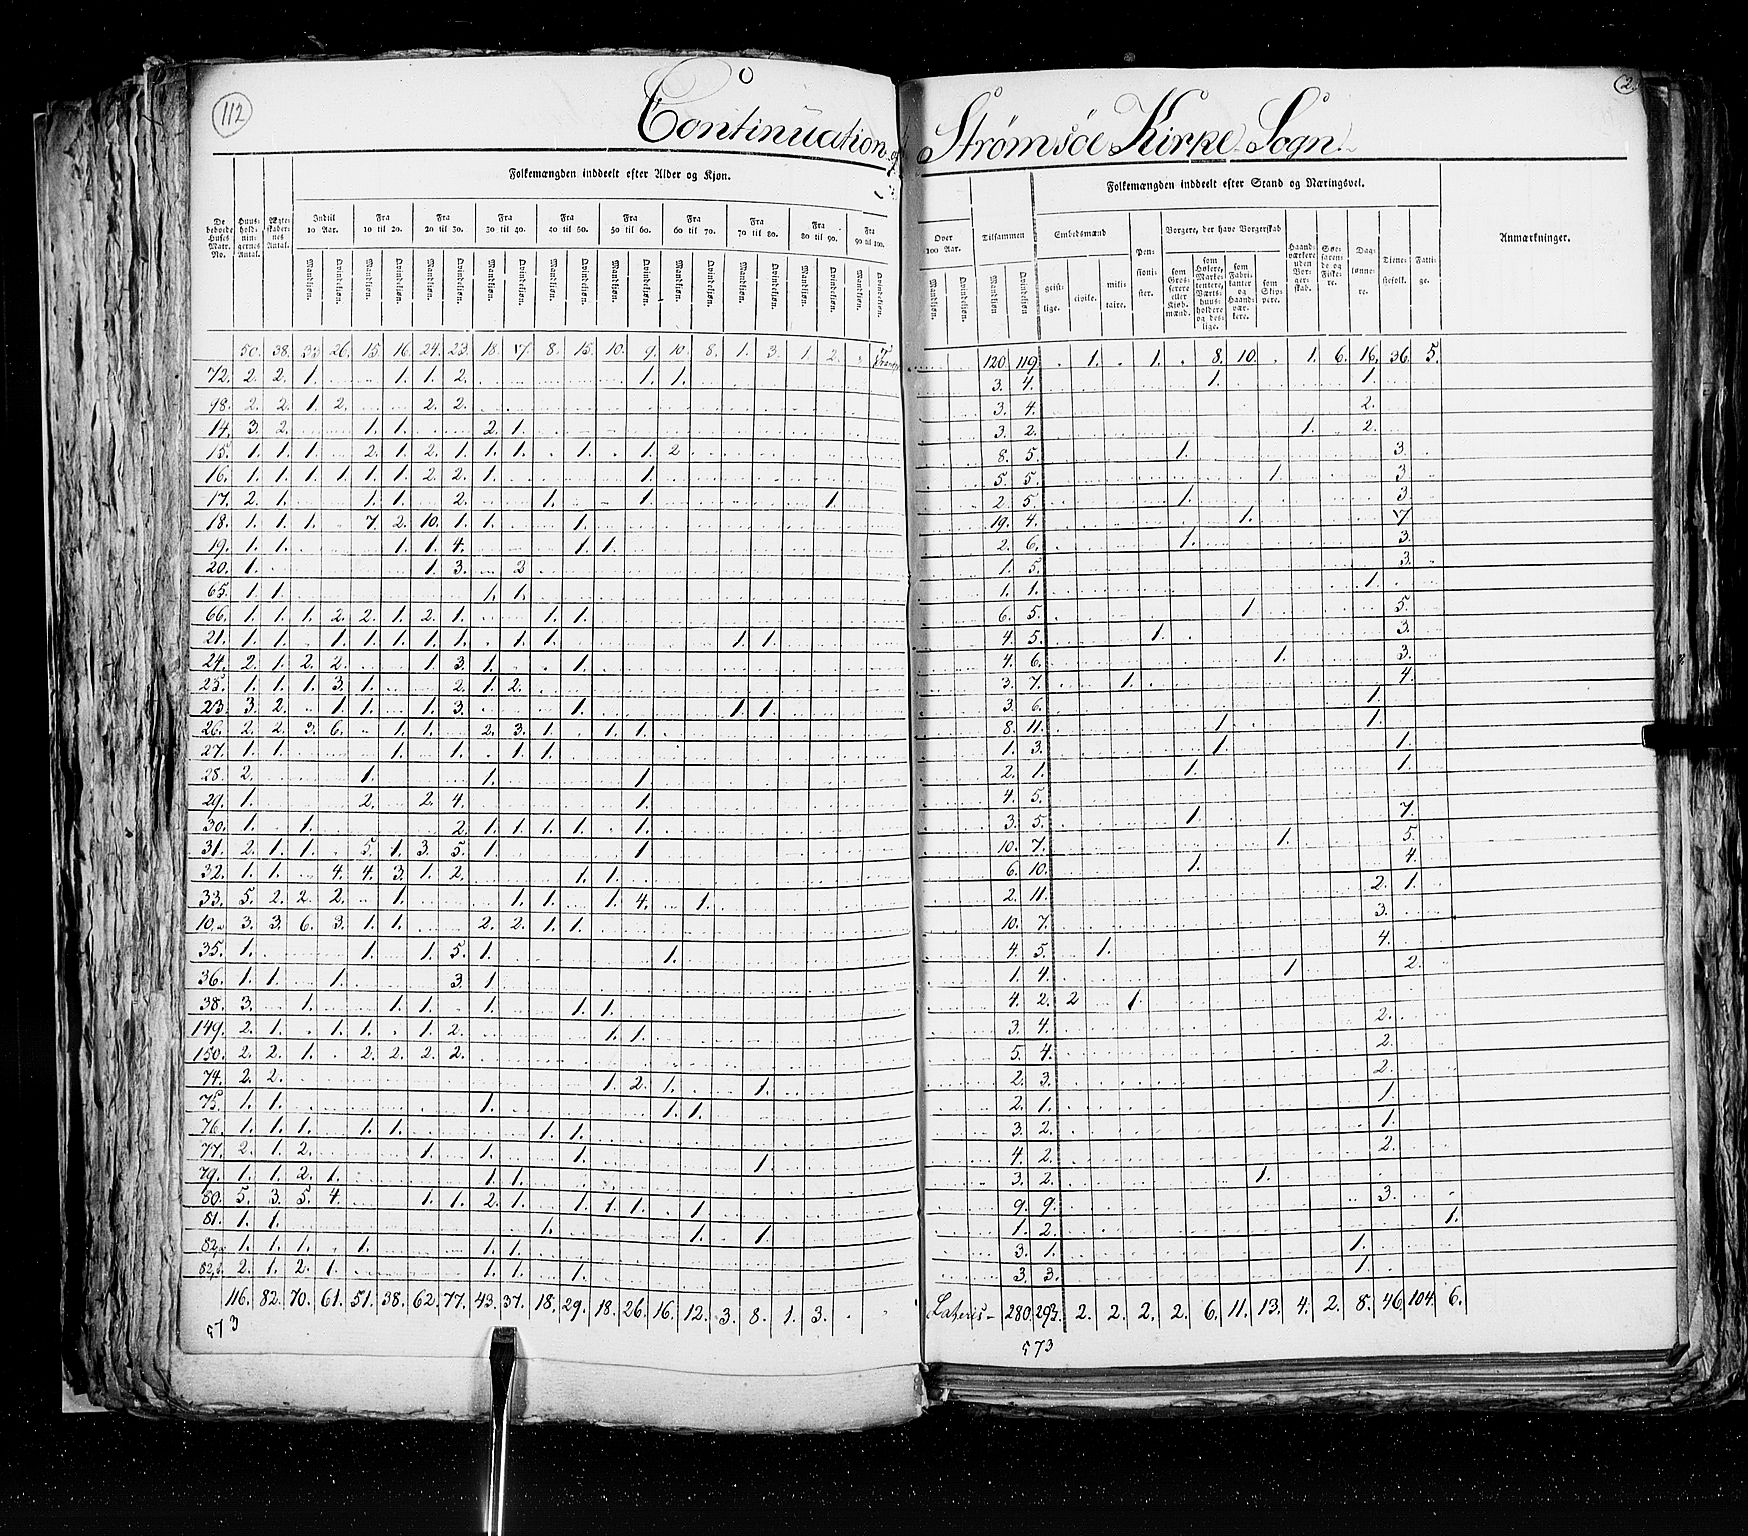 112
2
Continuation af Strømsöe Kirke Sogn
Folkemængden inddeelt efter Alder og Kjøn.
Folkemængden inddeelt efter Stand og Næringsvei.
De beboede Huses Matr. No.
Huus-holdnin-gernes Antal.
Ægte-skaber-nes Antal.
Indtil 10 Aar.
Fra 10 til 20.
Fra 20 til 30.
Fra 30 til 40.
Fra 40 til 50.
Fra 50 til 60.
Fra 60 til 70.
Fra 70 til 80.
Fra 80 til 90.
Fra 90 til 100.
Over 100 Aar.
Tilsammen
Embedsmænd
Pen-sioni-ster.
Borgere, der have Borgerskab
Haand-værkere uden Bor-ger-skab.
Søe-farende og Fiske-re.
Dag-lønne-re.
Tiene-stefolk.
Fatti-ge.
Anmærkninger.
Mandkjøn. Qvindekjøn.
geist-lige. civile. mili-taire.
som Gros-serere eller Kiøb-mænd.
som Høkere, Marke-tentere, Værts-huus-holdere og des-lige.
som Fabri-kanter og Haand-vær-kere.
som Skip-pere.
50. 38. 32. 26. 15. 16. 24. 23. 18. 17. 8. 15. 10. 9. 10. 8. 1. 3. 1. 2. 120. 119. 1. 1. 8. 10. 1. 6. 16. 36. 5.
72. 2. 2. 1. 1. 1. 2. 1. 1. 3. 4. 1. 1.
78. 2. 2. 1. 2. 2. 2. 3. 4. 2.
14. 3. 2. 1. 1. 2. 1. 3. 2. 1. 2.
15. 1. 1. 1. 2. 1. 2. 1. 1. 1. 1. 1. 2 8. 5. 1. 3.
16. 1. 1. 1. 1. 1. 1. 2. 2. 1. 1. 5. 5. 1. 3
17. 2. 1. 1. 1. 2. 1. 1. 1. 2. 5. 1. 3
18. 1. 1. 1. 7. 2. 10. 1. 1. 1. 19. 4. 1. 7
19. 1. 1. 1. 1. 4. 1. 1. 2. 6. 1. 3.
20. 1. 1. 3. 2 1. 5. 3.
65. 1. 1. 1. 1. 1. 1. 1.
66. 1. 1. 1. 2. 2. 1. 2. 1. 1. 1. 6. 5. 1. 5.
21. 1. 1. 1. 1. 1. 1. 1. 1. 1. 1. 1. 4. 5. 1. 3.
24. 2. 1. 2. 2. 1. 3. 1. 1. 4. 6. 1. 3.
25. 1. 1. 1. 3. 1. 2. 1. 2. 3. 7. 1. 4.
23. 3. 2. 1. 1. 1. 3. 1. 1. 1. 3. 6. 1.
26. 2. 2. 3. 6. 1. 1. 2. 3. 1. 1. 1. 8. 11. 1. 1.
27. 1. 1. 1. 1. 1. 1. 1. 3. 1. 1.
28. 2. 1. 1. 1. 2. 1. 1. 1.
29. 1. 2. 2. 4. 1. 4. 5. 7.
30. 1. 1. 2. 1. 1. 1. 1. 1. 3. 5. 1. 5.
31. 2. 1. 1. 5. 1. 3. 5. 1. 1. 10. 7. 1. 4.
32. 1. 1. 4. 4. 3. 1. 2. 1. 1. 6. 10. 1.
33. 5. 2. 2. 2. 1. 1. 1. 1. 4. 1. 2. 11. 2. 1.
10. 3. 3. 6. 3. 1. 1. 2. 2. 1. 1. 10. 7. 3.
35. 1. 1. 1. 5. 1. 1. 4. 5. 1. 4.
36. 1. 1. 1. 3. 1. 1. 4. 1. 2.
38. 3. 1. 1. 1. 1. 1. 1. 4. 2. 2 1.
149. 2. 1. 1. 1. 1. 2. 1. 1. 3. 4. 2.
150. 2. 2. 1. 2. 2. 2. 2. 5. 4. 2.
74. 2. 2. 1. 2. 1. 1. 2. 3. 2.
75. 1. 1. 1. 1. 1. 2. 1. 1.
76. 1. 1. 1. 1. 1. 1. 1. 3. 2. 1.
77. 2. 1. 2. 1. 1. 1. 1. 4. 2. 2.
79. 1. 1. 2. 1. 1. 1. 3. 2. 1.
80. 5. 3. 5. 4. 1. 1. 2. 1. 1. 1. 1. 1. 9. 9. 3.
81. 1. 1. 1. 1. 1. 1. 2. 1.
82. 1. 1. 1. 1. 1. 1. 3. 1. 1.
82. 2. 1. 2. 1. 1. 1. 1. 3. 3. 1.
116. 82. 70. 61. 51. 38. 62. 77. 43. 37. 18. 29. 18. 26. 16. 12. 3. 8. 1. 3. Lateris - 280. 293. 2. 2. 2. 2. 6. 11. 13. 4. 2. 8. 46. 104. 6.
573
573